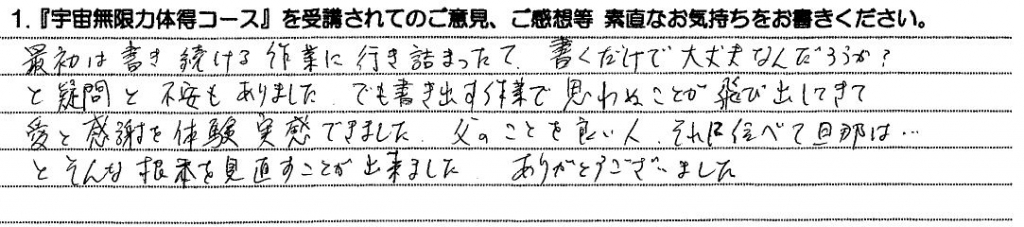 1.『宇宙無限力体得コース』を受講されてのご意見、ご感想等 素直なお気持ちをお書きください。
最初は書き続ける作業に行き詰まったて、書くだけで大丈夫なんだろうか?
と疑問と不安もありました。でも書き出す作業で思わぬことが飛び出してきて
愛と感謝を体験実感できました。父のことを良い人、それに比べて旦那は…
とそんな根本を見直すことが出来ました ありがとうございました